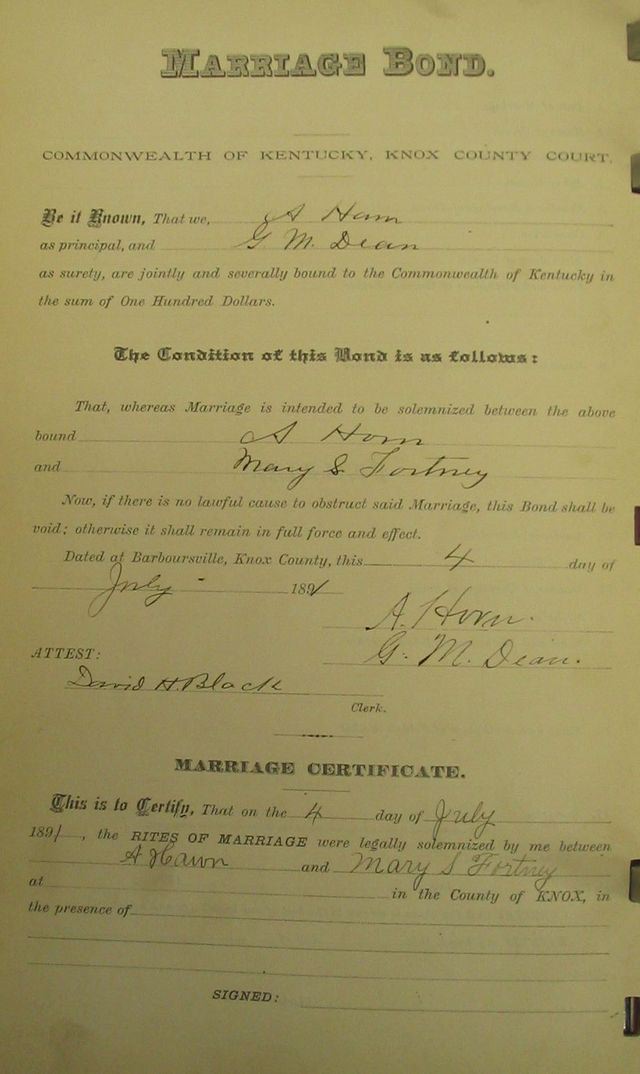 MARRIAGE BOND.
COMMONWEALTH OF KENTUCKY, KNOX COUNTY COURT.
Be it Known, That we, A Horn
as principal, and G. M. Dean
as surety, are jointly and severally bound to the Commonwealth of Kentucky in
the sum of One Hundred Dollars.
The Condition of this Bond is as follows:
That, whereas Marriage is intended to be solemnized between the above
bound A Horn
and Mary S. Fortney
Now, if there is no lawful cause to obstruct said Marriage, this Bond shall be
void; otherwise it shall remain in full force and effect.
Dated at Barboursville, Knox County, this 4 day of
July 1891
A. Horn.
G. M. Dean.
ATTEST:
David H. Black
Clerk.
MARRIAGE CERTIFICATE.
This is to Certify, That on the 4 day of July
1891, the RITES OF MARRIAGE were legally solemnized by me between
A Hawn and Mary S Fortney
at in the County of KNOX, in
the presence of
SIGNED: